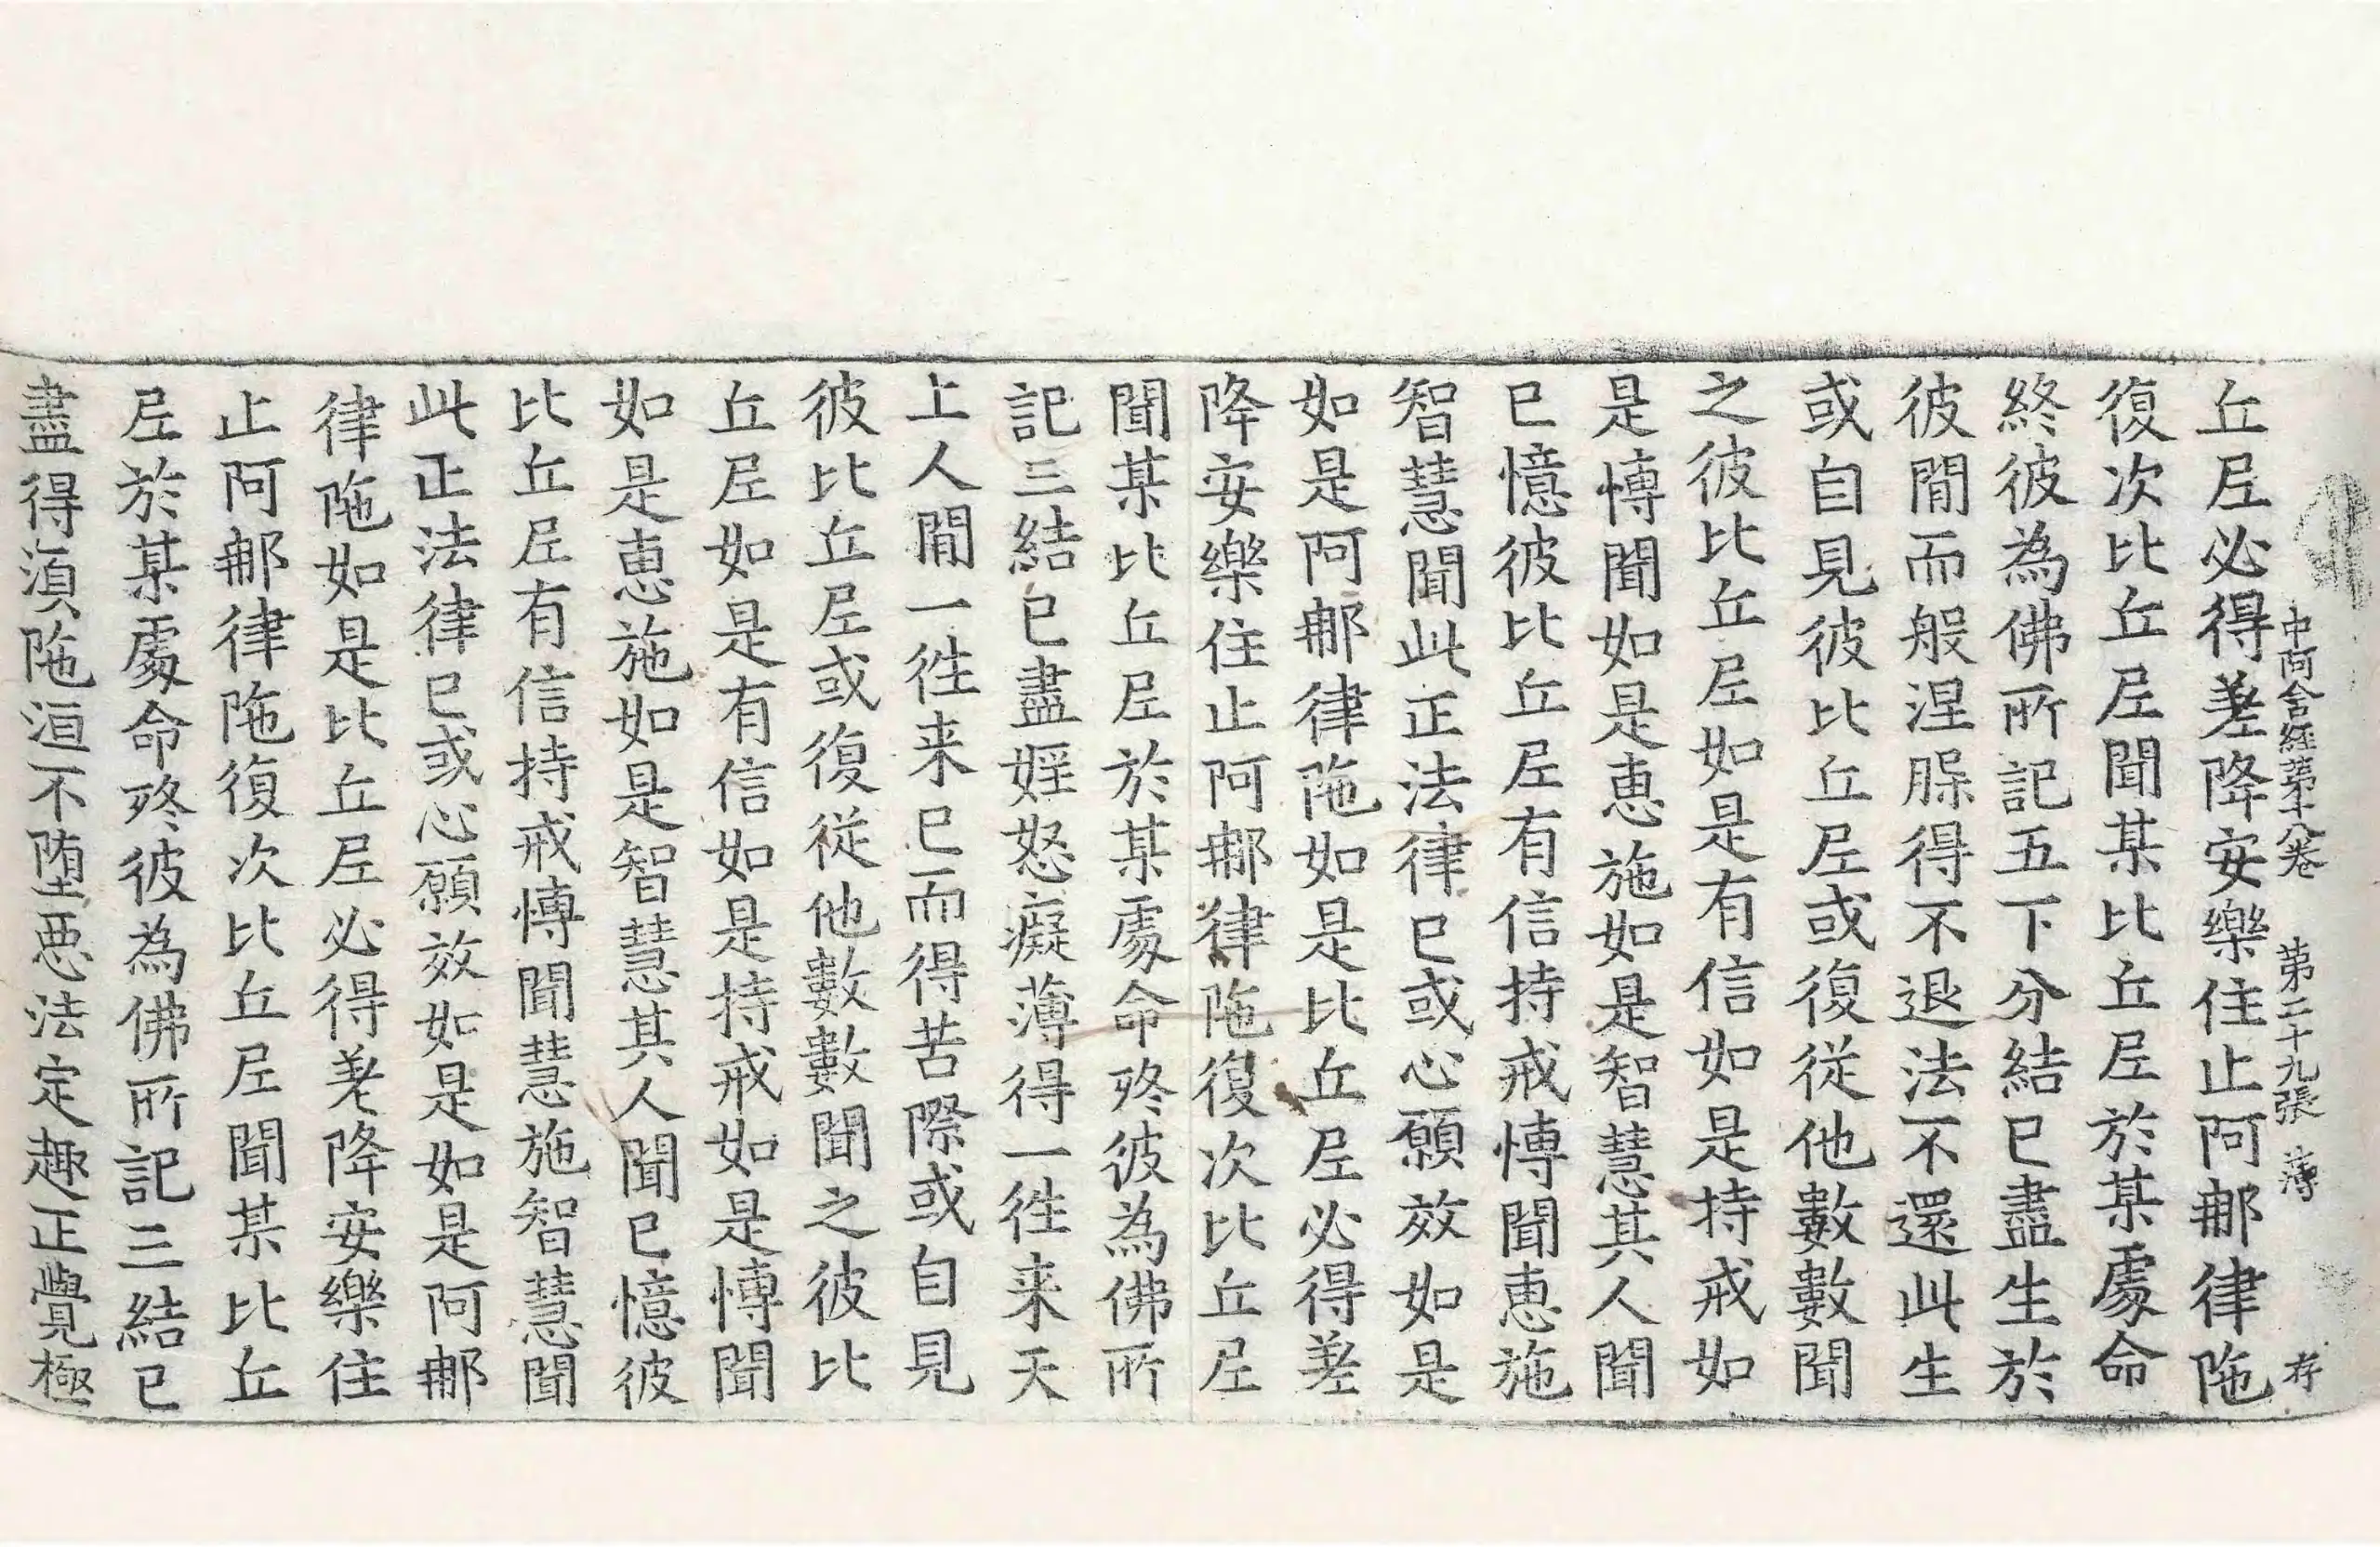 中阿含經第十八卷 第二十九張 薄 存
丘𡰱必得差降安樂住止阿𨚗律陁
復次比丘𡰱聞某比丘𡰱於某處命
終彼為佛所記五下分結已盡生於
彼閒而般涅槃得不退法不還此生
或自見彼比丘𡰱或復從他數數聞
之彼比丘𡰱如是有信如是持戒如
是博聞如是惠施如是智慧其人聞
已憶彼比丘𡰱有信持戒博聞惠施
智慧聞此正法律已或心願效如是
如是阿𨚗律陁如是比丘𡰱必得差
降安樂住止阿𨚗律陁復次比丘𡰱
聞某比丘𡰱於某處命終彼為佛所
記三結已盡婬怒癡薄得一往来天
上人閒一往来已而得苦際或自見
彼比丘𡰱或復從他數數聞之彼比
丘𡰱如是有信如是持戒如是博聞
如是惠施如是智慧其人聞已憶彼
比丘𡰱有信持戒博聞慧施智慧聞
此正法律已或心願效如是如是阿𨚗
律陁如是比丘𡰱必得差降安樂住
止阿𨚗律陁復次比丘𡰱聞某比丘
𡰱於某處命終彼為佛所記三結已
盡得湏陁洹不墮惡法定趣正覺極